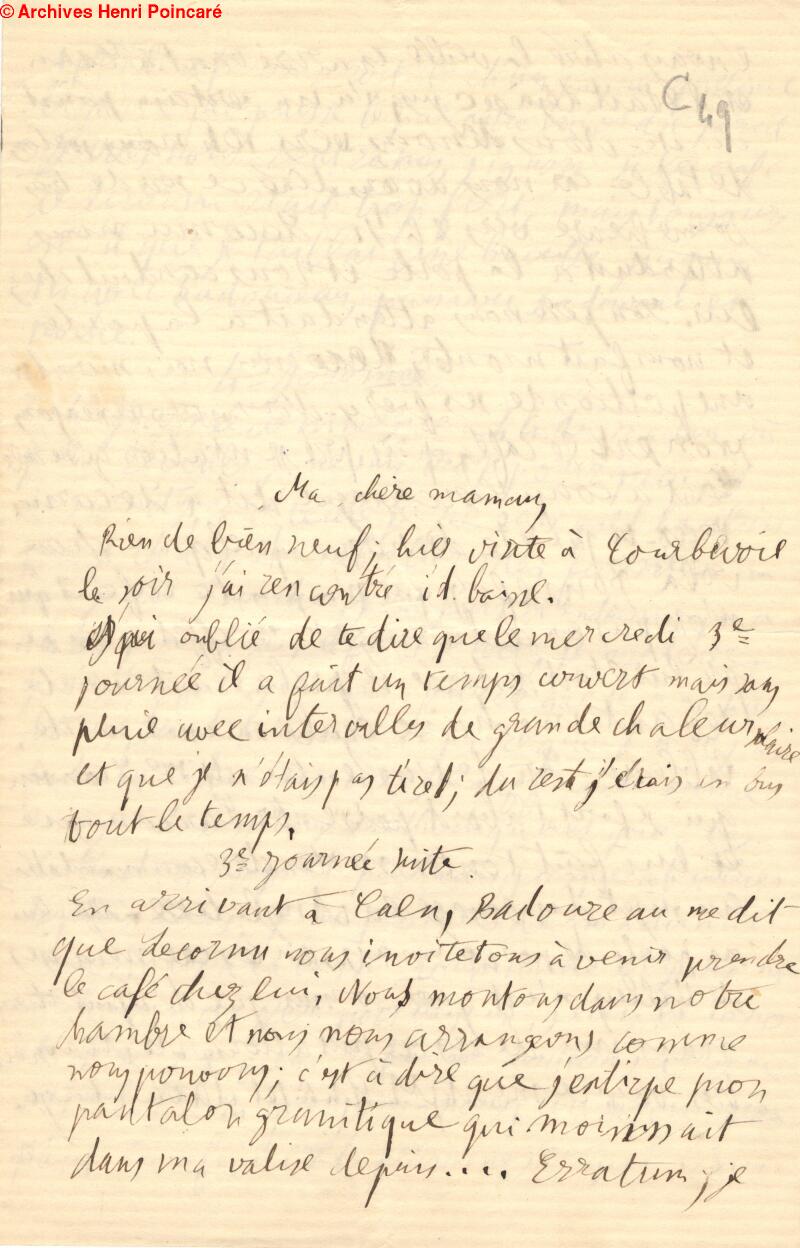 © Archives Henri Poincaré
C49
Ma chère maman,
Rien de bien neuf; hier visite à Courbevoie
le soir j'ai rencontré id.
J'ai oublié de te dire que le mercredi 3e
journée il a fait un temps couvert mais sans
pluie avec intervalles de grande chaleur solaire
et que je n'étais pas tiré; du reste j'étais en bus
tout le temps.
3e journée suite.
En arrivant à Caen, Badoureau me dit
que Lecornu nous invite tous à venir prendre
le café chez lui. Nous montons dans notre
hambre et nous nous arrangeons comme
nous pouvons; c'est à dire que j'extirpe mon
pantalon granitique qui moisissait
dans ma valise depuis.... Erratum; je